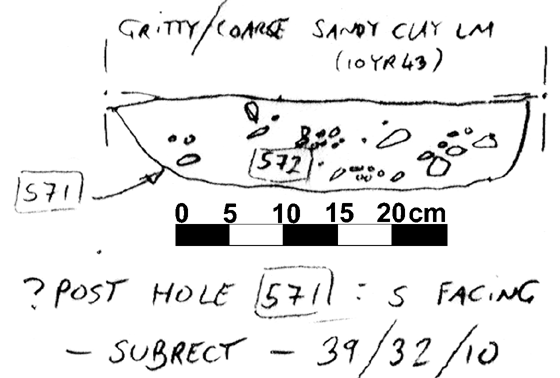 GRITTY/COARSE SANDY CLAY LM
(10YR43)
572
571
0 5 10 15 20 cm
? POST HOLE 571 : S FACING
- SUBRECT - 39/32/10